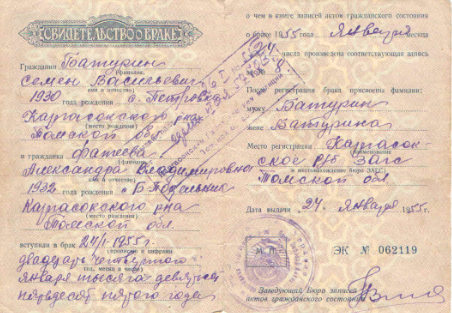 СВИДЕТЕЛЬСТВО О БРАКЕ
Гражданин Батурин
(фамилия)
Семен Васильевич
(имя и отчество)
1930 года рождения с. Петровка
Каргасокского р-на
(место рождения)
Томской обл
и гражданка Фатеева
(фамилия)
Александра Владимировна
(имя и отчество)
1932 года рождения с.
Каргасокского р-на
(место рождения)
Томской обл
вступили в брак 24/I 1955 г.
двадцать четвертого
января тысяча девятьсот
пятьдесят пятого года
о чем в книге записей актов гражданского состояния
о браке 1955 года Января месяца
24 числа произведена соответствующая запись
После регистрации брака присвоены фамилии:
мужу Батурин
жене Батурина
Место регистрации Каргасок-
ское р/б Загс
(наименование и местонахождение бюро ЗАГС)
Томской обл
Дата выдачи „24" января 1955 г.
ЭК № 062119
М. П.
Заведующий Бюро записи
актов гражданского состояния